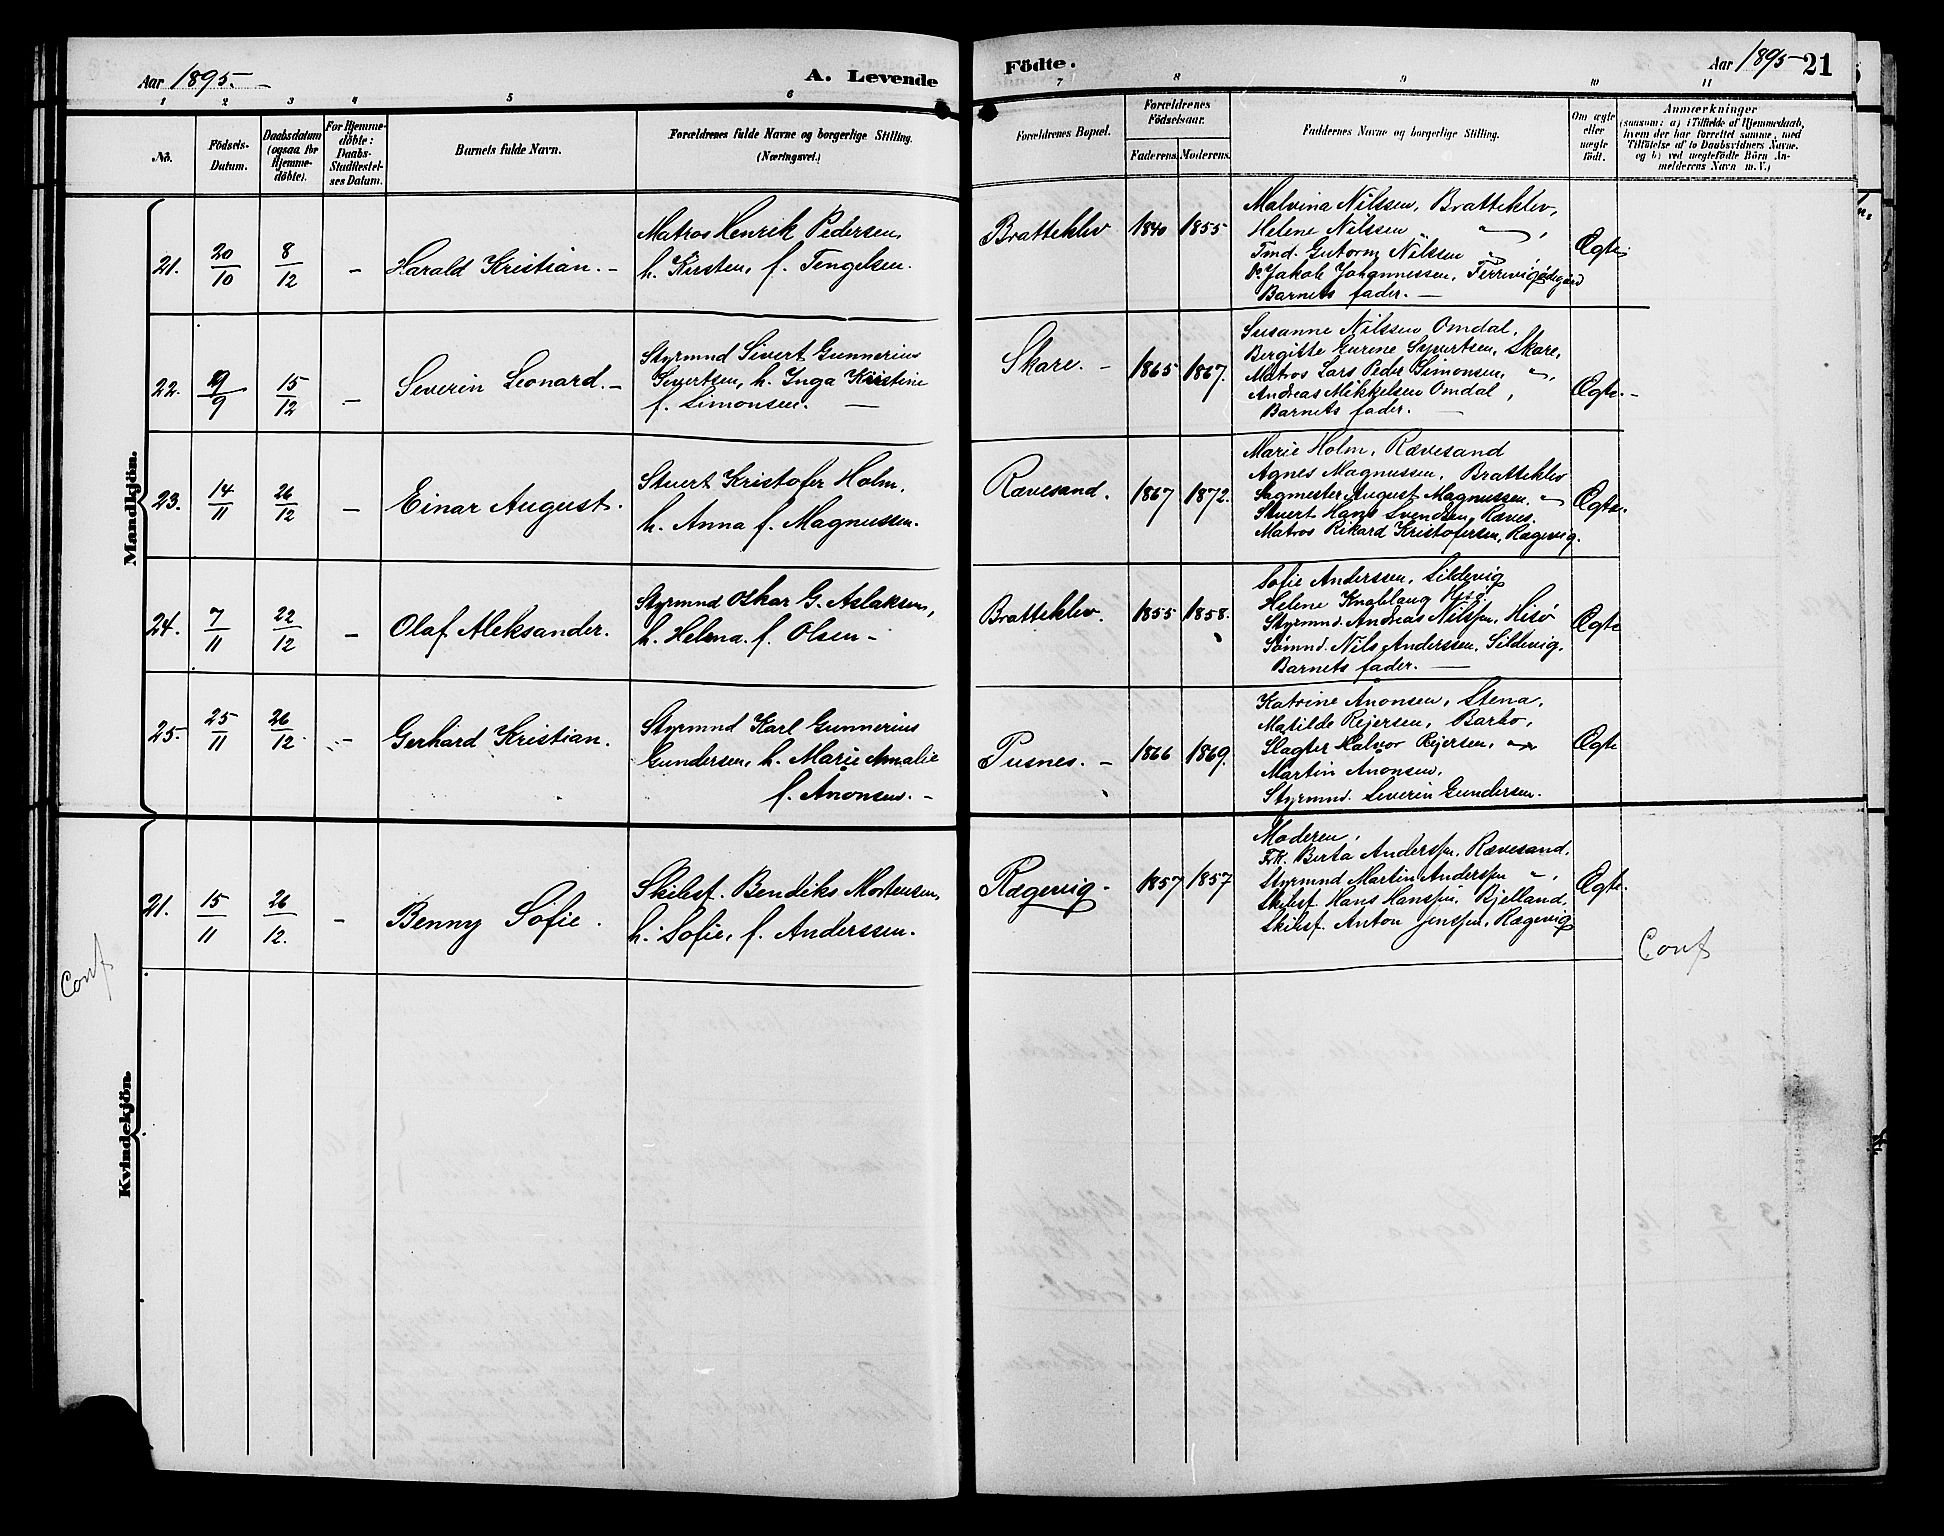 Aar 1895.
A. Levende
1 2 3 4 5 6
No.
Födsels-
Datum.
Daabsdatum
(ogsaa for
Hjemme-
döbte).
For Hjemme-
döbte:
Daabs-
Stadfæstel-
ses Datum.
Barnets fulde Navn.
Forældrenes fulde Navne og borgerlige Stilling.
(Næringsvei.)
Mandkjön.
21. 20/10 8/12 – Harald Kristian. –
Matros Henrik Pedersen,
h. Kirsten, f. Tengelsen.
22. 9/9 15/12 – Severin Leonard. –
Styrmnd Sivert Gunnerius
Sivertsen, h. Inga Kristine
f. Simonsen. —
23. 14/11 26/12 – Einar August.
Stuert Kristofer Holm,
h. Anna f. Magnussen.
24. 7/11 22/12 – Olaf Aleksander.
Styrmnd Oskar G. Aslaksen,
h. Helena. f. Olsen –
25. 25/11 26/12. – Gerhard Kristian.
Styrmnd Karl Gunnerius
Gundersen, h. Marie Amalie
f. Anonsen. –
Kvindekjön.
21. 15/11 26/12. – Benny Sofie.
Skibsf. Bendiks Mortensen,
h. Sofie, f. Anderssen.
Conf
Födte.
Aar 1895
21
7 8 9 10 11
Forældrenes Bopæl.
Forældrenes
Födselsaar.
Faderens. Moderens.
Faddernes Navne og borgerlige Stilling.
Om ægte
eller
uægte
födt.
Anmærkninger
(saasom: a) i Tilfælde af Hjemmedaab,
hvem der har forrettet samme, med
Tilföielse af to Daabsvidners Navne,
og b) ved uægtefödte Börn An-
melderens Navn m. V.)
Bratteklev 1840 1855
Malvina Nilssen, Bratteklev,
Helene Nilssen " ,
Tmd. Gutorm Nilssen
Do. Jakob Johannessen, Ferrevigødegård
Barnets fader. —
Ægte
Skare. – 1865 1867.
Susanne Nilssen Omdal,
Bergitte Gurine Syvertsen, Skare,
Matros Lars Peder Simonsen, ",
Andreas Mikkelsen Omdal,
Barnets fader. —
Ægte. –
Rævesand. 1867 1872.
Marie Holm, Rævesand
Agnes Magnussen, Bratteklev
Sagmester August Magnussen, "
Stuert Hans Svendsen, Ræves.
Matros Rikard Kristofersen, Rægevig.
Ægte.
Bratteklev. 1855 1858.
Sofie Anderssen, Sildevig
Helene Knablaug Hisø.
Styrmnd. Andreas Nilssen, Hisø
Sømnd. Nils Anderssen, Sildevig.
Barnets fader. —
Ægte
Pusnes. – 1866 1869.
Katrine Anonsen, Stena,
Matilde Rejersen, Barbo,
Slagter Halvor Rejersen, "
Martin Anonsen,
Styrmnd. Severin Gundersen.
Ægte
Rægevig. 1857 1857
Moderen,
Frk. Berta Anderssen, Rævesand.
Styrmnd Martin Anderssen ",
Skibsf. Hans Hanssen, Bjelland,
Skibsf. Anton Jenssen, Rægevig
Ægte.
Conf